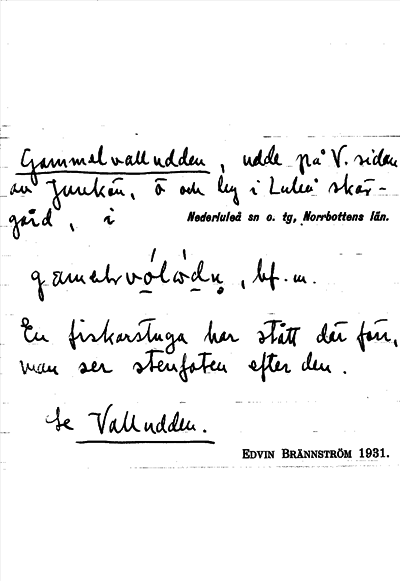 Gammelvalludden, udde på V. sidan
av Junkön, ö och by i Luleå skär-
gård, i Nederluleå sn o. tg, Norrbottens län.
bf. m.
En fiskarstuga har stått där förr,
man ser stenfoten efter den.
Se Valludden.
EDVIN BRÄNNSTRÖM 1931.